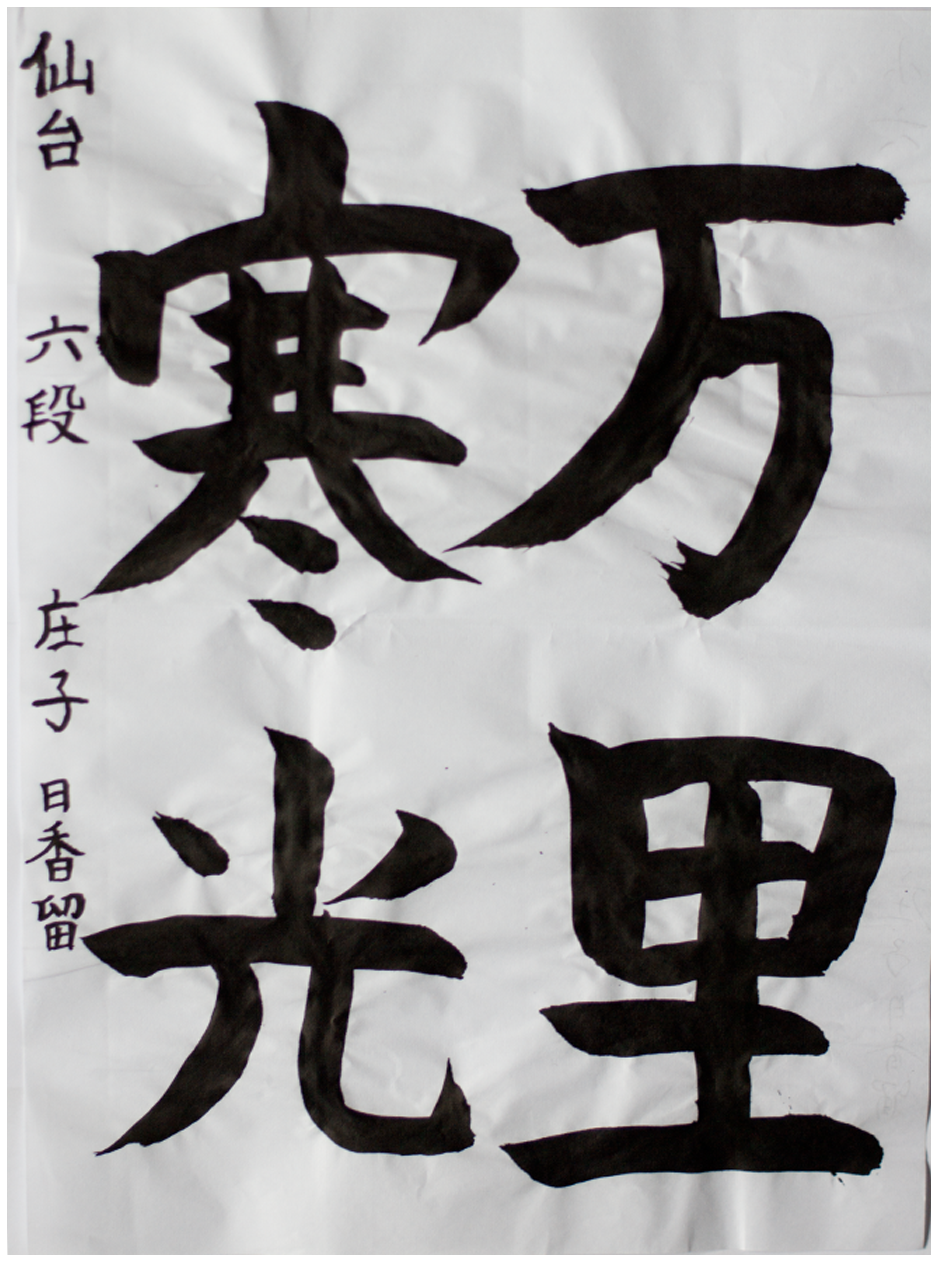 万里
寒光
仙台 六段 庄子 日香留